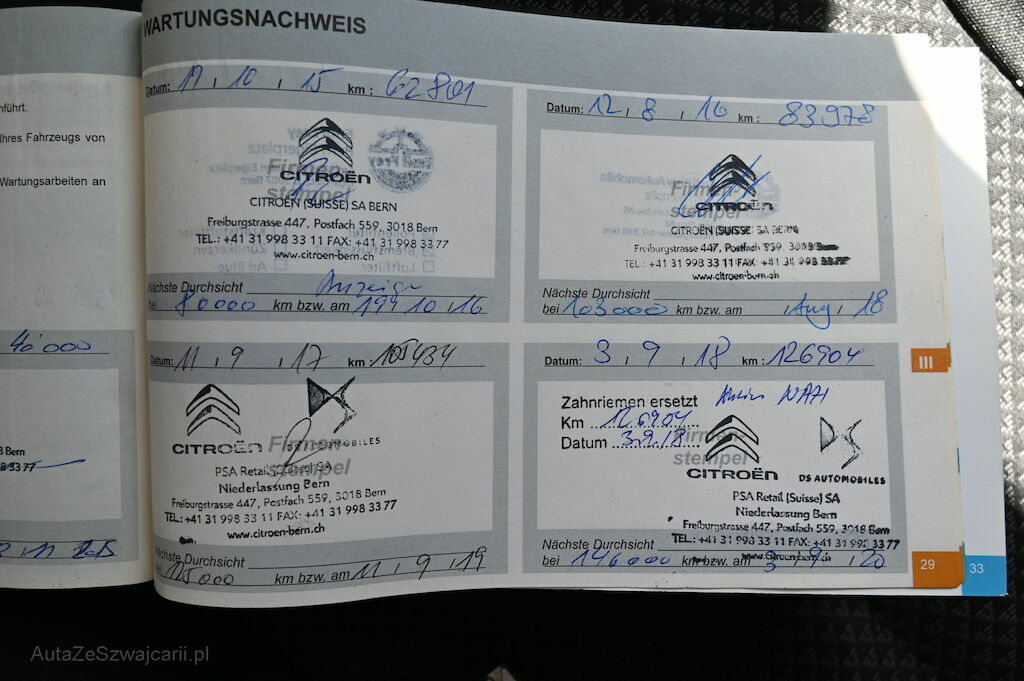 WARTUNGSNACHWEIS
nführt.
Ihres Fahrzeugs von
Wartungsarbeiten an
40'000
Bern
Datum: 17, 10, 15 km: 62801
Firmen-
stempel
CITROËN
CITROËN (SUISSE) SA BERN
Freiburgstrasse 447, Postfach 559, 3018 Bern
TEL.: +41 31 998 33 11 FAX: +41 31 998 33 77
www.citroen-bern.ch
Luftfilter
Ad Blue
Nächste Durchsicht Anzeige
bei 80000 km bzw. am 10, 16
Datum: 12, 8, 16 km: 83978
Firmen-
stempel
CITROËN
CITROËN (SUISSE) SA BERN
Freiburgstrasse 447, Postfach 559, 3018 Bern
TEL.: +41 31 998 33 11 FAX: +41 31 998 33 77
www.citroen-bern.ch
Nächste Durchsicht
bei 103000 km bzw. am Aug, 18
Datum: 11, 9, 17 km: 105434
Firmen-
stempel
CITROËN DS AUTOMOBILES
PSA Retail (Suisse) SA
Niederlassung Bern
Freiburgstrasse 447, Postfach 559, 3018 Bern
TEL.: +41 31 998 33 11 FAX: +41 31 998 33 77
www.citroen-bern.ch
Nächste Durchsicht
bei 125000 km bzw. am 11, 9, 19
Datum: 3, 9, 18 km: 126904
Zahnriemen ersetzt
Km 126904
Datum 3.9.18
Firmen-
stempel
CITROËN DS AUTOMOBILES
PSA Retail (Suisse) SA
Niederlassung Bern
Freiburgstrasse 447, Postfach 559, 3018 Bern
TEL.: +41 31 998 33 11 FAX: +41 31 998 33 77
www.citroen-bern.ch
Nächste Durchsicht
bei 146000 km bzw. am 3, 9, 20
III
29
33
AutaZeSzwajcarii.pl